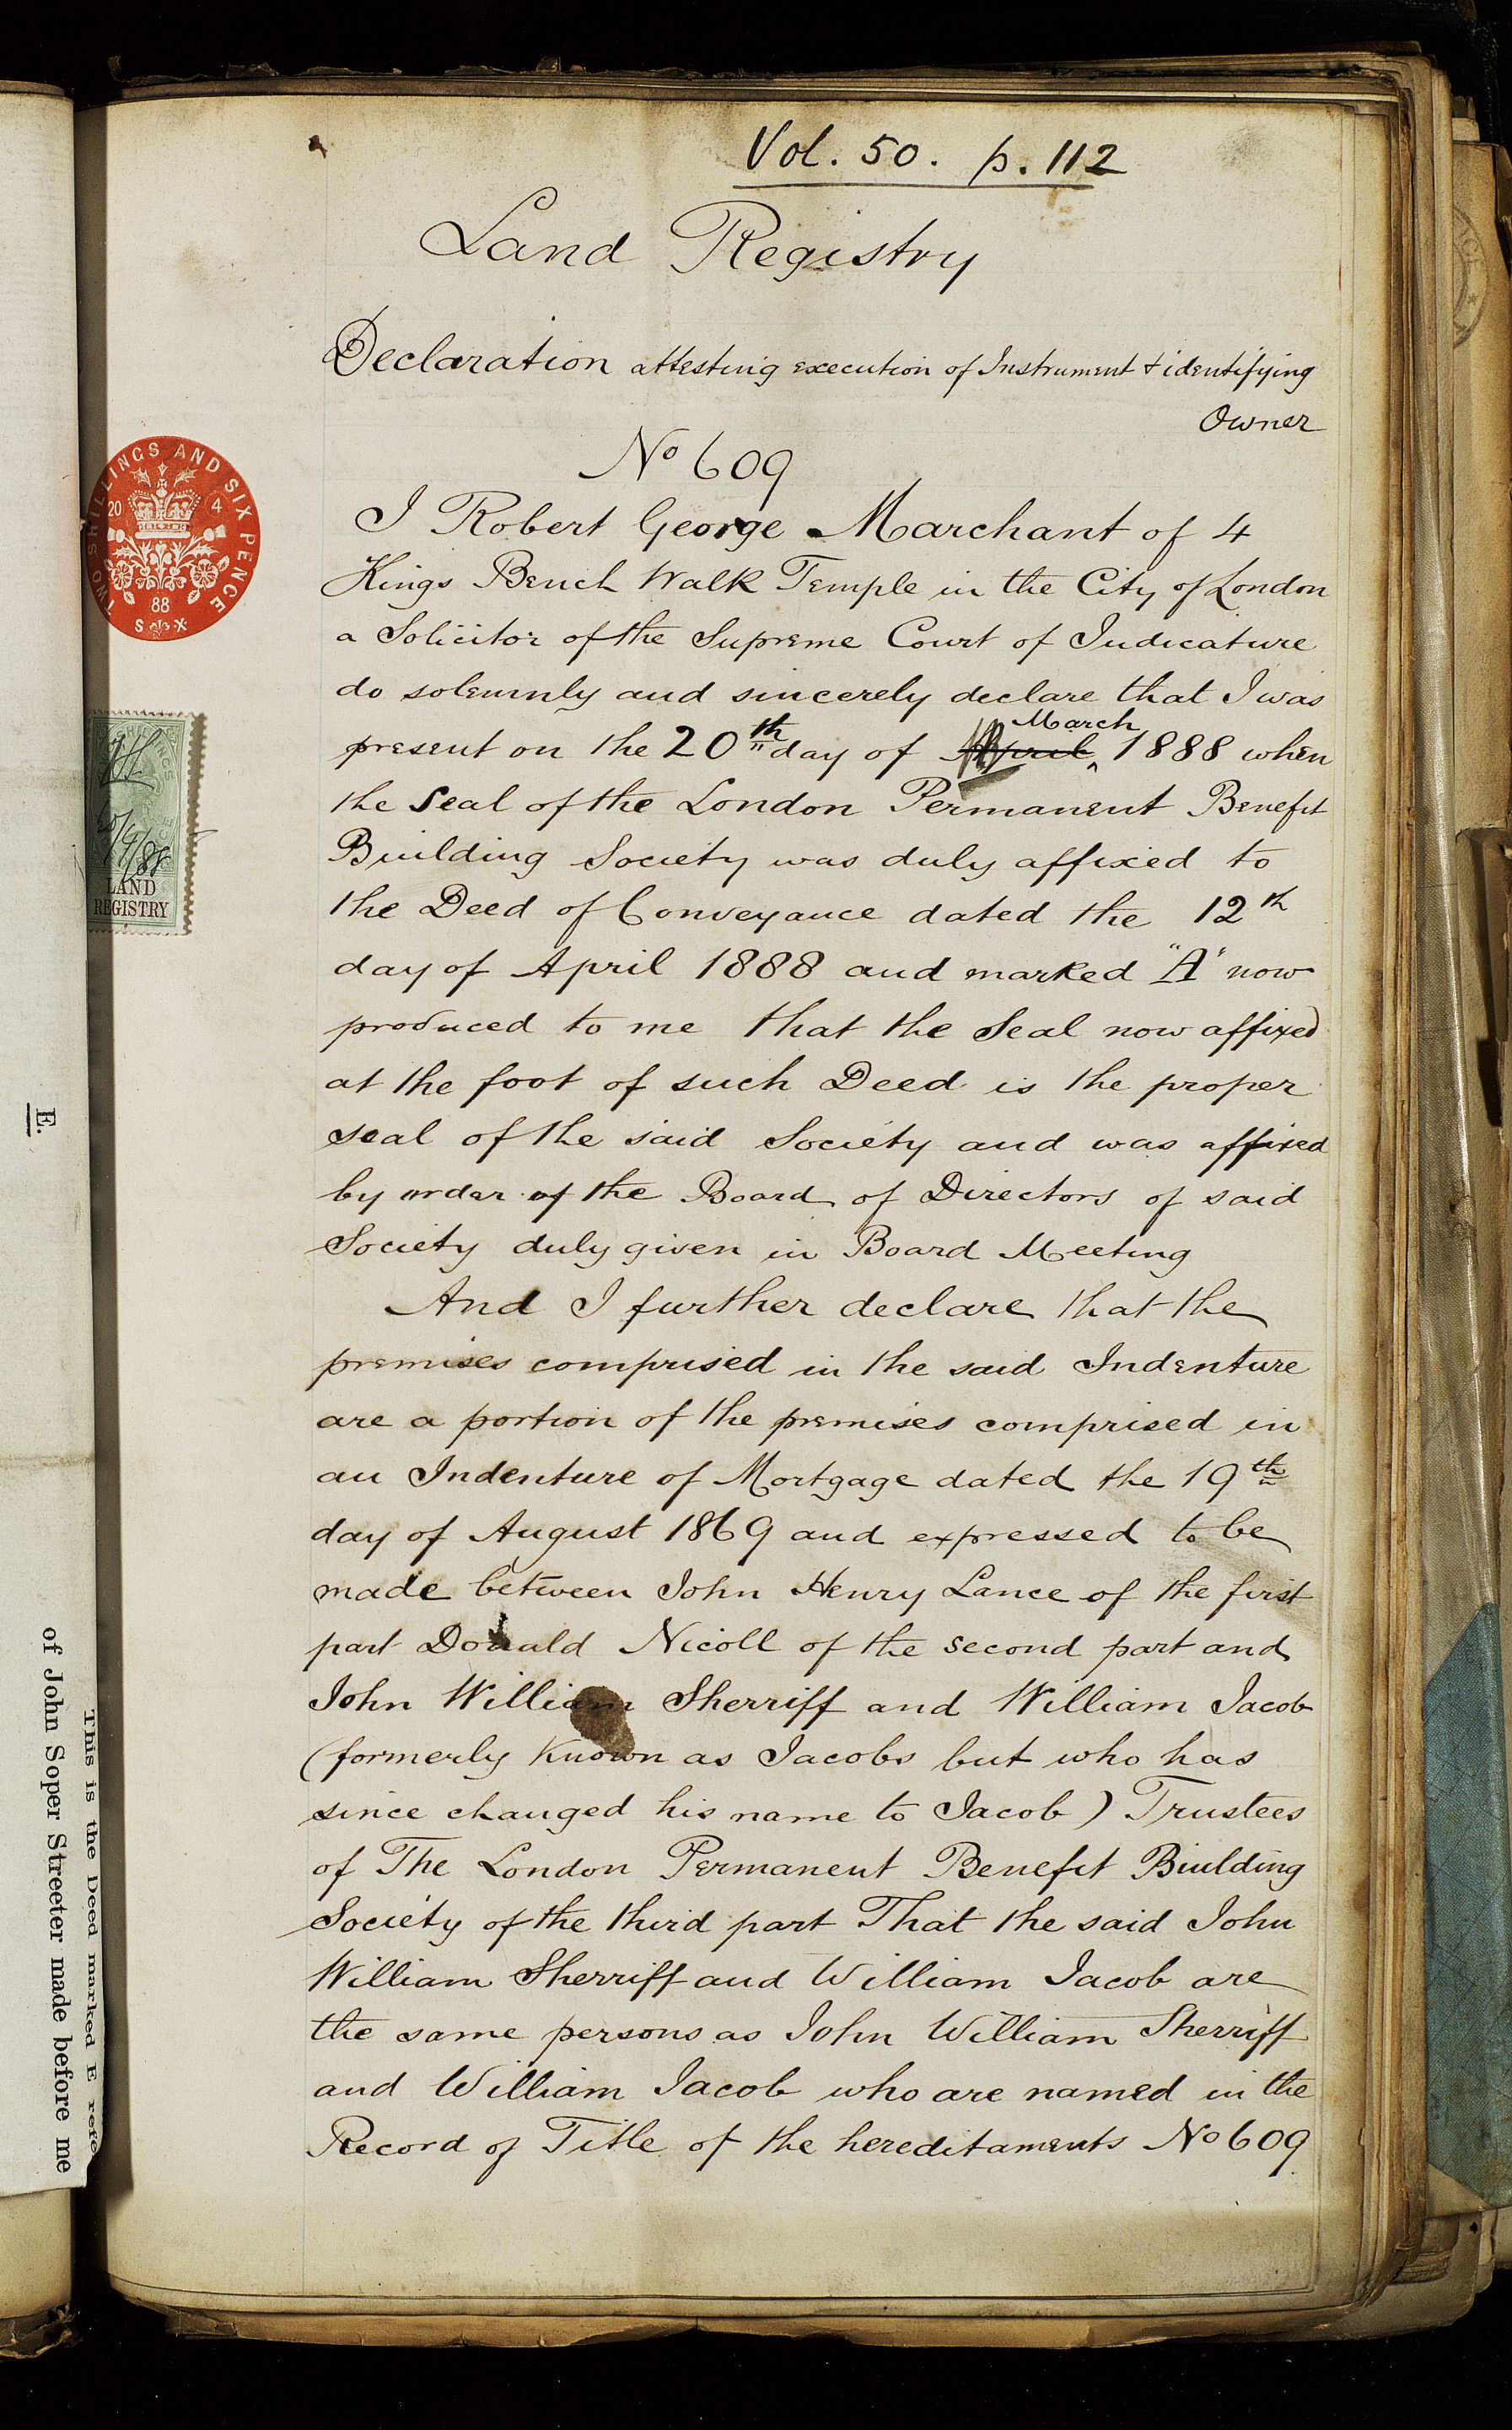 Vol. 50. p. 112
Land Registry
Declaration attesting execution of Instrument & identifying
Owner
No 609
I Robert George Marchant of 4
Kings Bench Walk Temple in the City of London
a Solicitor of the Supreme Court of Judicature
do solemnly and sincerely declare that I was
present on the 20th day of April March 1888 when
the Seal of the London Permanent Benefit
Building Society was duly affixed to
the Deed of Conveyance dated the 12th
day of April 1888 and marked "A" now
produced to me that the Seal now affixed
at the foot of such Deed is the proper
seal of the said Society and was affixed
by order of the Board of Directors of said
Society duly given in Board Meeting
And I further declare that the
premises comprised in the said Indenture
are a portion of the premises comprised in
an Indenture of Mortgage dated the 19th
day of August 1869 and expressed to be
made between John Henry Lance of the first
part Donald Nicoll of the second part and
John William Sherriff and William Jacob
(formerly known as Jacobs but who has
since changed his name to Jacob) Trustees
of The London Permanent Benefit Building
Society of the third part That the said John
William Sherriff and William Jacob are
the same persons as John William Sherriff
and William Jacob who are named in the
Record of Title of the hereditaments No 609
TWO SHILLINGS AND SIX PENCE
20 4
88
S X
20/4/88
LAND
REGISTRY
E.
This is the Deed marked E refe
of John Soper Streeter made before me